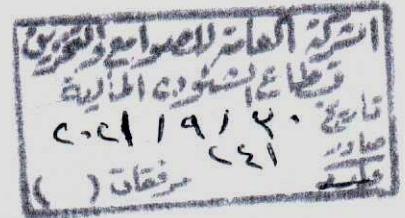 الشركة العامة للصوامع والتخزين
قطاع الشئون المالية
تاريخ ٣٠ / ٩ / ٢٠٢١
صادر ٢٤١
مرفقات ( )